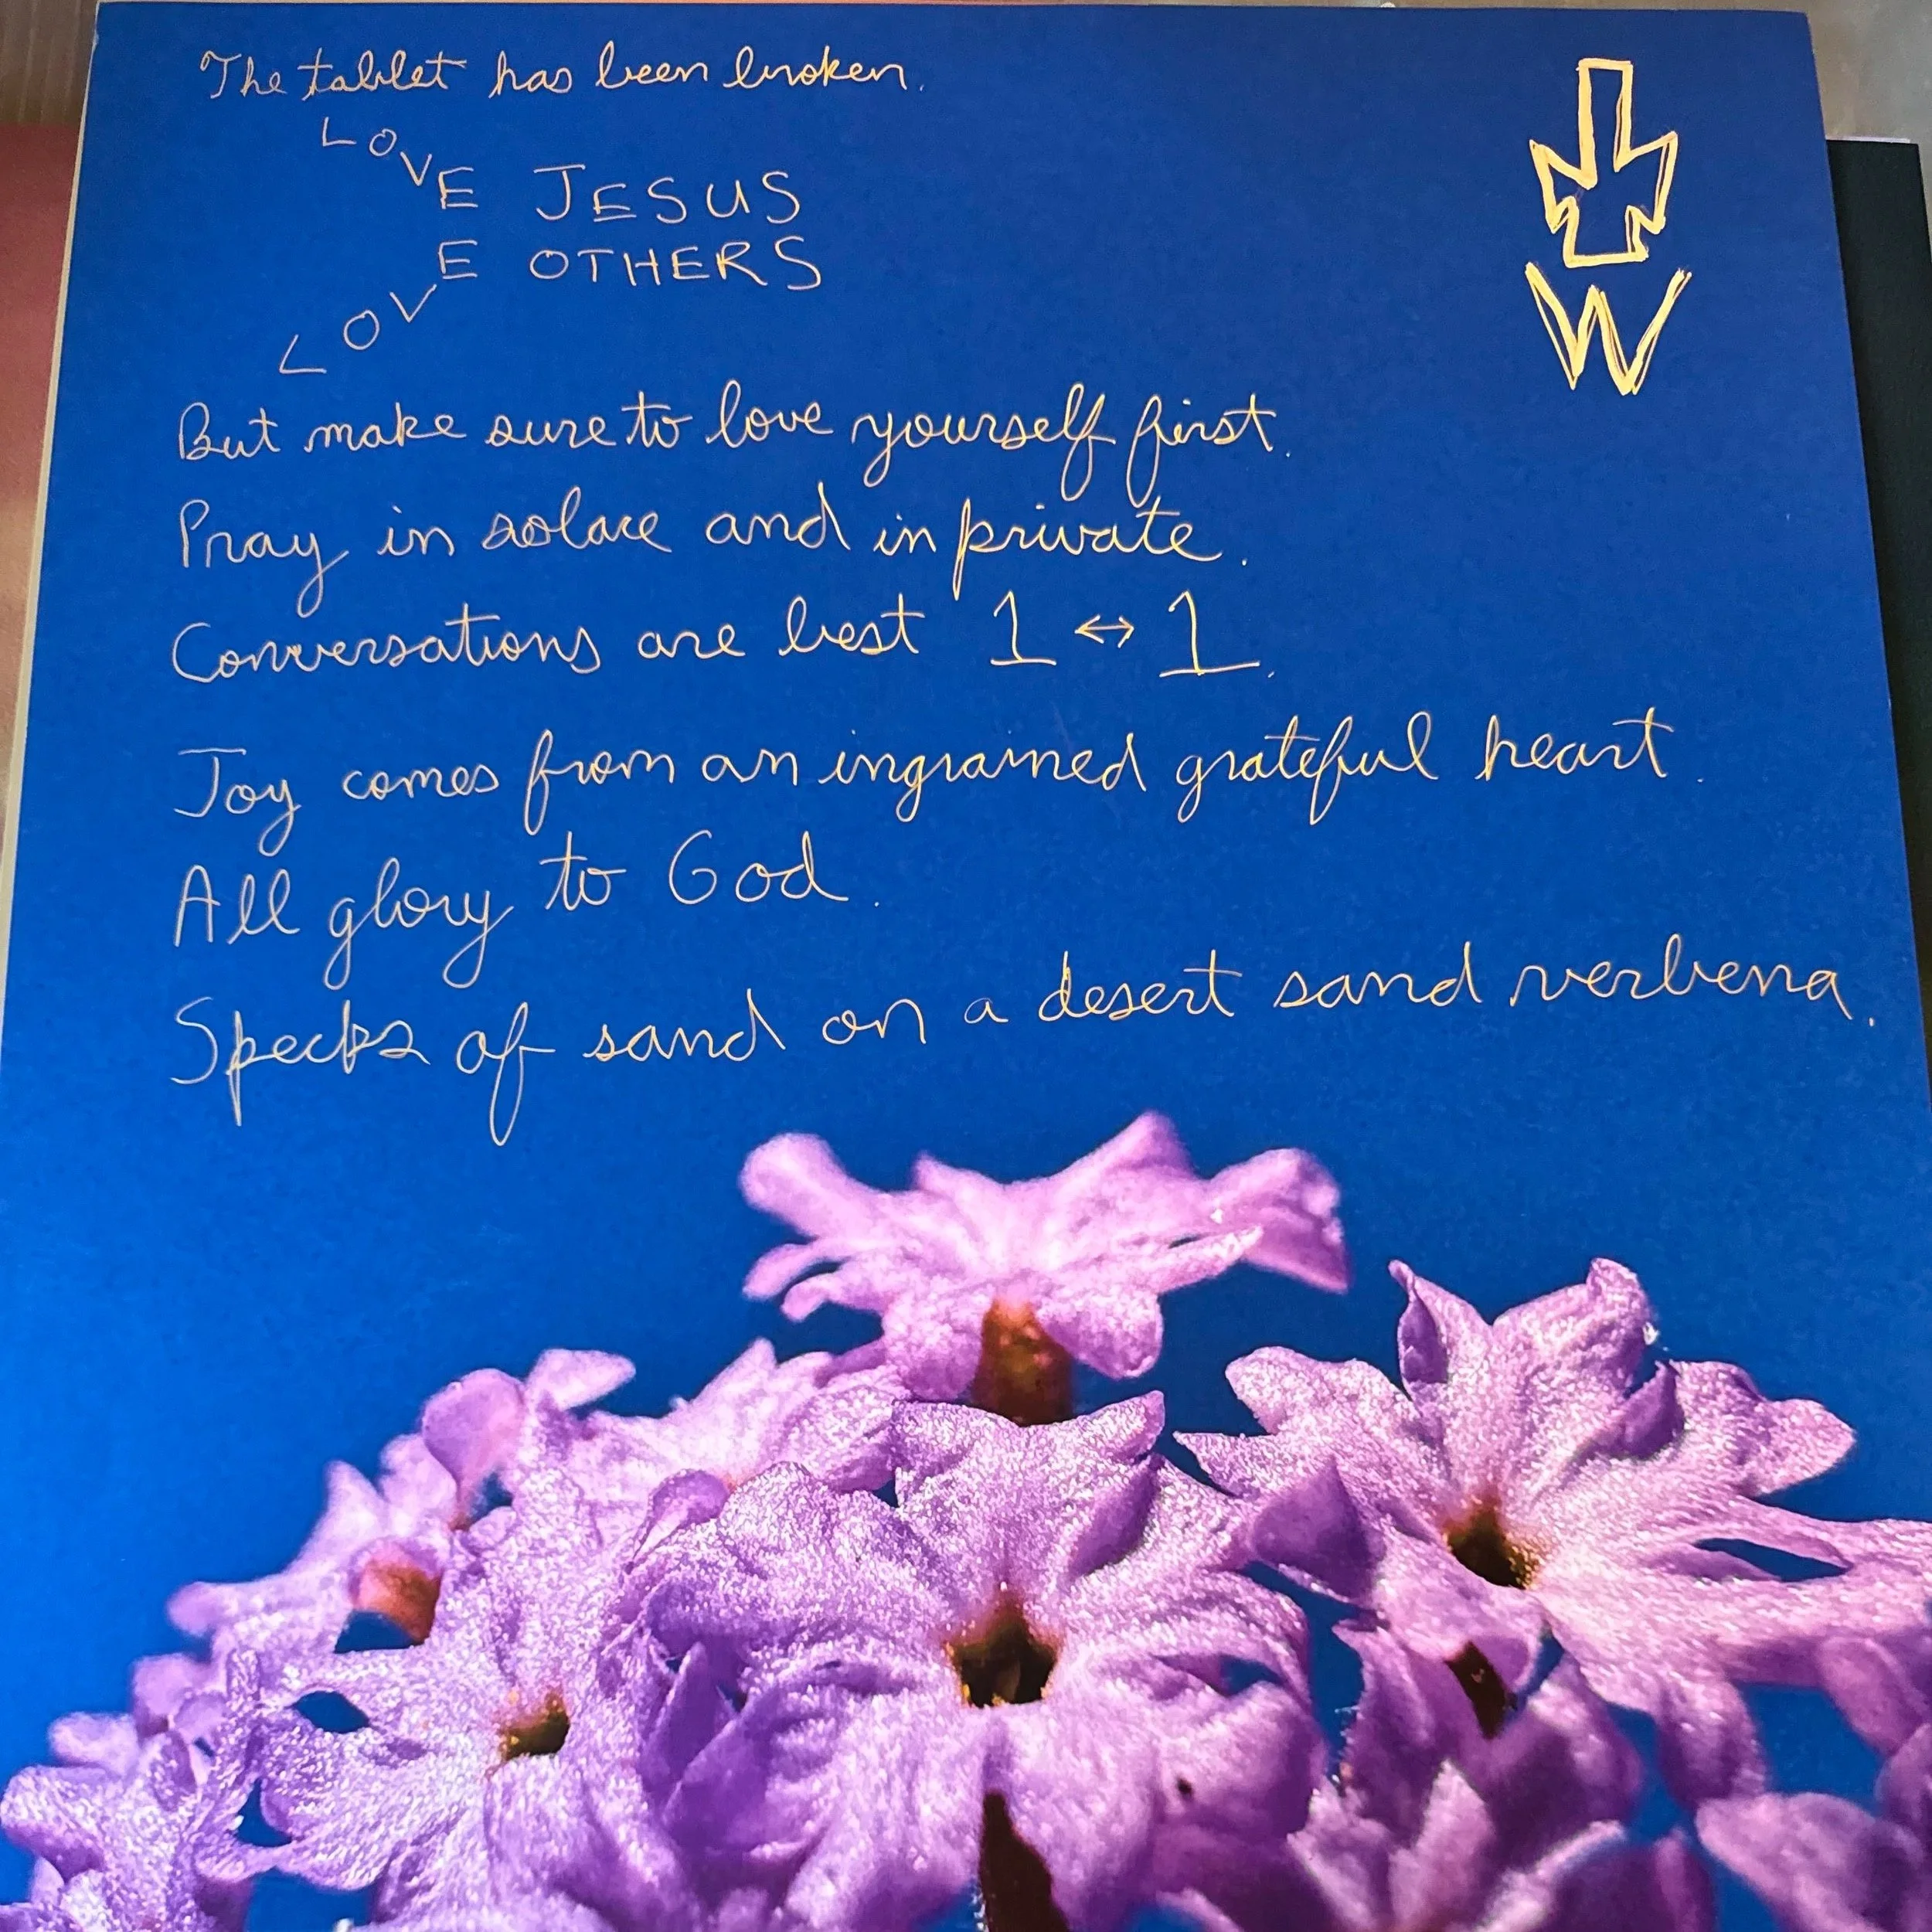 The tablet has been broken.
LOVE JESUS
LOVE OTHERS
But make sure to love yourself first.
Pray in solace and in private.
Conversations are best 1 ↔ 1.
Joy comes from an ingrained grateful heart.
All glory to God.
Specks of sand on a desert sand verbena.
W